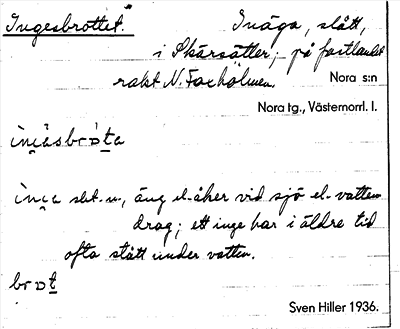 Ingesbrottet." Inäga, slått,
i Skärsätter, på fastlandet
rakt N. Foxholmen. Nora s:n
Nora tg., Västernorrl. l.
ı̀ŋäsbrɔ̀ta
ı̀ŋa sbt. n., äng el. åker vid sjö el. vatten-
drag; ett inge har i äldre tid
ofta stått under vatten.
brɔt
Sven Hiller 1936.